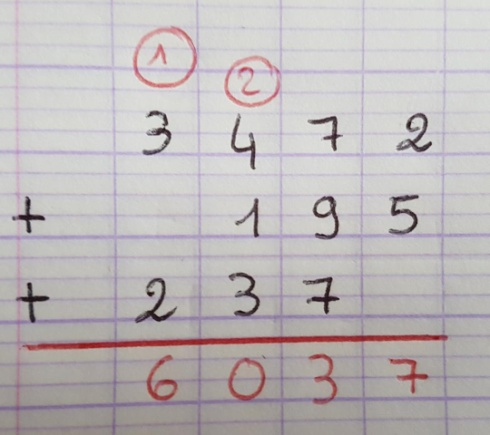 1 2
3 4 7 2
+ 1 9 5
+ 2 3 7
6 0 3 7